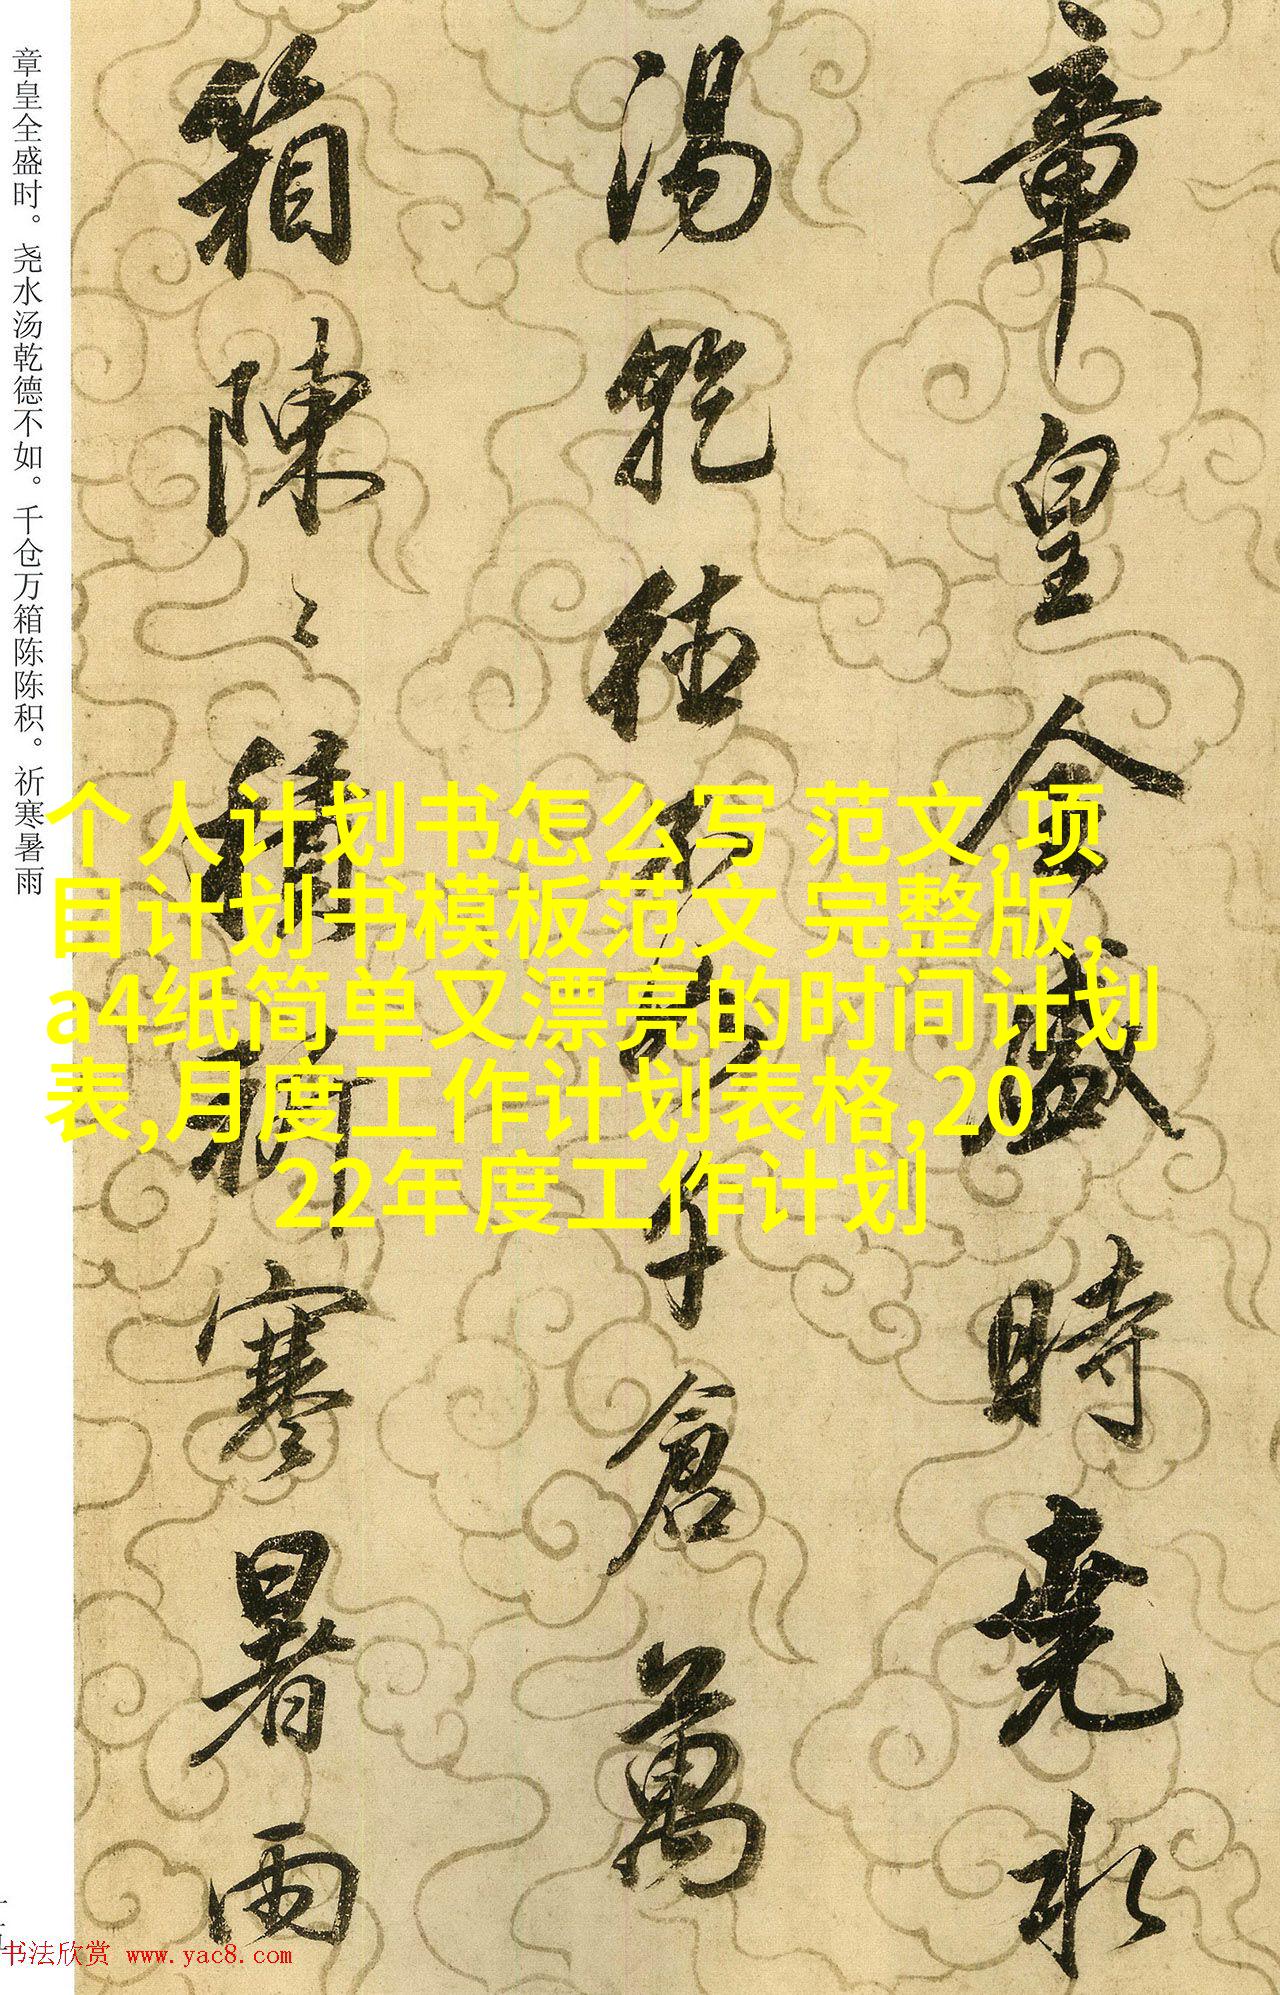 章皇全盛時堯水
湯乾德不如千倉萬
箱陳〻積祈寒暑雨
章皇全盛时。尧水汤乾德不如。千仓万箱陈陈积。祈寒暑雨
个人计划书怎么写 范文,项
目计划书模板范文 完整版,
a4纸简单又漂亮的时间计划
表,月度工作计划表格,20
22年度工作计划
书法欣赏 www.yac8.com